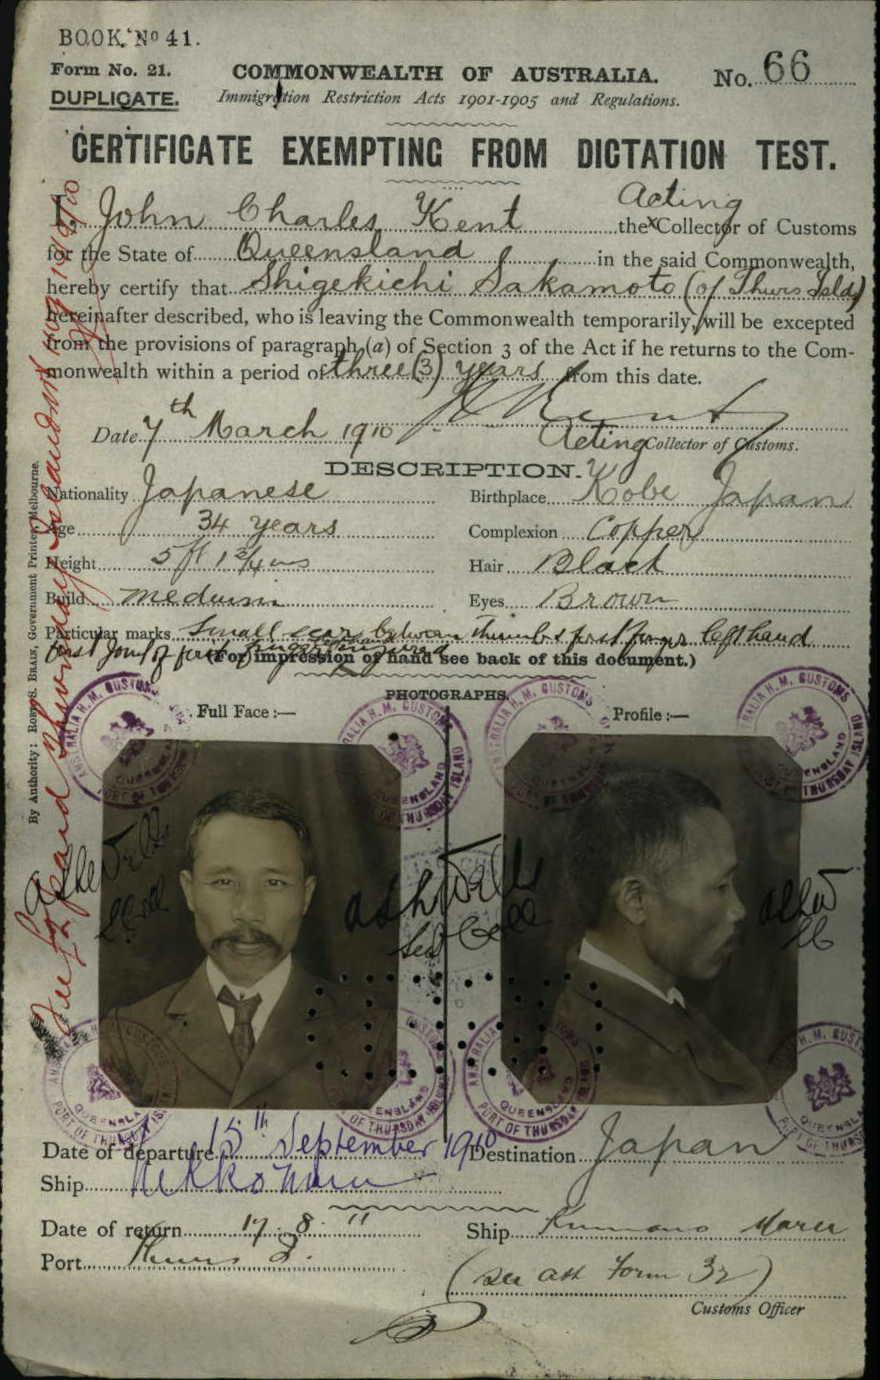 BOOK. Nº 41.
Form No. 21.
COMMONWEALTH OF AUSTRALIA.
No. 66
DUPLICATE.
Immigration Restriction Acts 1901-1905 and Regulations.
CERTIFICATE EXEMPTING FROM DICTATION TEST.
Acting
I, John Charles Kent the x Collector of Customs
for the State of Queensland in the said Commonwealth,
hereby certify that Shigekichi Sakamoto (of Thurs Isld)
hereinafter described, who is leaving the Commonwealth temporarily, will be excepted
from the provisions of paragraph (a) of Section 3 of the Act if he returns to the Com-
monwealth within a period of three (3) years from this date.
Kent
Date 7th March 1910 Acting Collector of Customs.
DESCRIPTION.
Nationality Japanese
Birthplace Kobe Japan
Age 34 years
Complexion Copper
Height 5 ft 1 3/4 ins
Hair Black
Build medium
Eyes Brown
Particular marks Small scars between thumb & first finger left hand
first joint of first finger
(For impression of hand see back of this document.)
PHOTOGRAPHS.
Full Face :—
Profile :—
By Authority: ROBT. S. BRAIN, Government Printer, Melbourne.
AUSTRALIA H.M. CUSTOMS
QUEENSLAND
PORT OF THURSDAY ISLAND
Date of departure 15th September 1910
Destination Japan
Ship Nikko Maru
Date of return 17.8.11
Ship Kumano Maru
Port Thurs I.
(see att Form 32)
Customs Officer